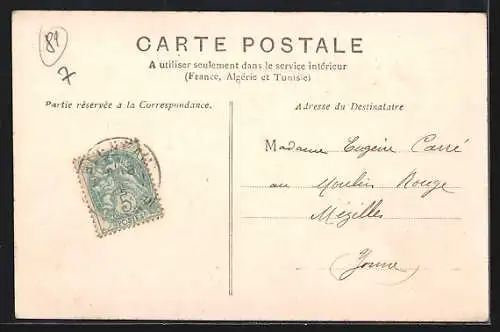 81
7
CARTE POSTALE
A utiliser seulement dans le service intérieur
(France, Algérie et Tunisie)
Partie réservée a la Correspondance.
Adresse du Destinataire
Madame Eugène Carré
au Moulin Rouge
Mézilles
(Yonne)
5